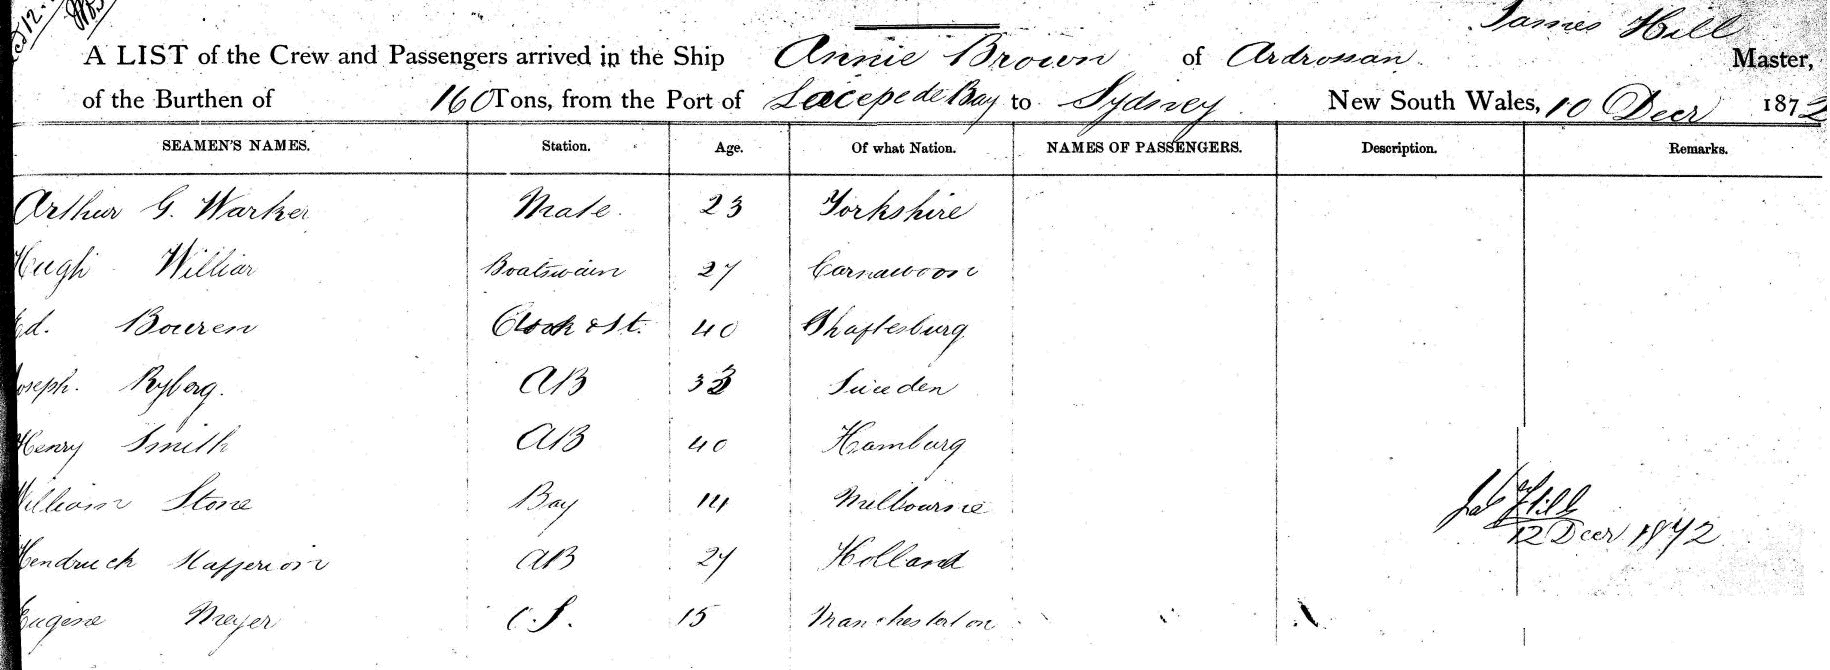 James Hill
A LIST of the Crew and Passengers arrived in the Ship Annie Brown of Ardrossan Master,
of the Burthen of 160 Tons, from the Port of Lacepede Bay to Sydney New South Wales, 10 Decr 1872
SEAMEN'S NAMES. Station. Age. Of what Nation. NAMES OF PASSENGERS. Description. Remarks.
Arthur G. Warker Mate. 23 Yorkshire
Hugh Williar Boatswain 27 Carnawoon
Ed. Bouren Cook & St. 40 Shaftesburg
Joseph. Ryberg. AB 33 Sweden
Henry Smith AB 40 Hamburg
William Stone Boy 14 Melbourne
Jas Hill
12 Decr 1872
Hendruck AB 27 Holland
Eugene Meyer O.S. 15